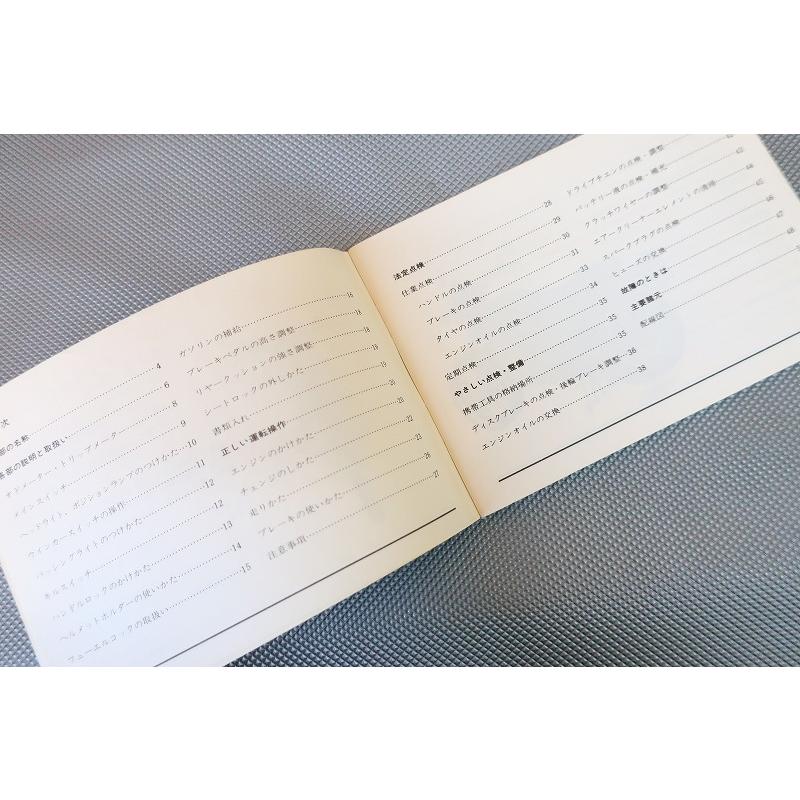 次
部の名称……4
各部の説明と取扱い……6
オドメーター・トリップメーター……8
メインスイッチ……9
ヘッドライト、ポジションランプのつけかた……10
ウインカースイッチの操作……11
パッシングライトのつけかた……12
キルスイッチ……12
ハンドルロックのかけかた……13
ヘルメットホルダーの使いかた……14
フューエルコックの取扱い……15
ガソリンの補給……16
ブレーキペダルの高さ調整……18
リヤークッションの強さ調整……18
シートロックの外しかた……19
書類入れ……19
正しい運転操作……20
エンジンのかけかた……20
チェンジのしかた……22
走りかた……23
ブレーキの使いかた……26
注意事項……27
法定点検……28
仕業点検……29
ハンドルの点検……30
ブレーキの点検……31
タイヤの点検……33
エンジンオイルの点検……34
定期点検……35
やさしい点検・整備……35
携帯工具の格納場所……35
ディスクブレーキの点検・後輪ブレーキ調整……36
エンジンオイルの交換……38
ドライブチエンの点検・調整
バッテリー液の点検・補充……43
クラッチワイヤーの調整……44
エアークリーナーエレメントの清掃……45
スパークプラグの点検……46
ヒューズの交換……47
故障のときは……48
主要諸元
配線図